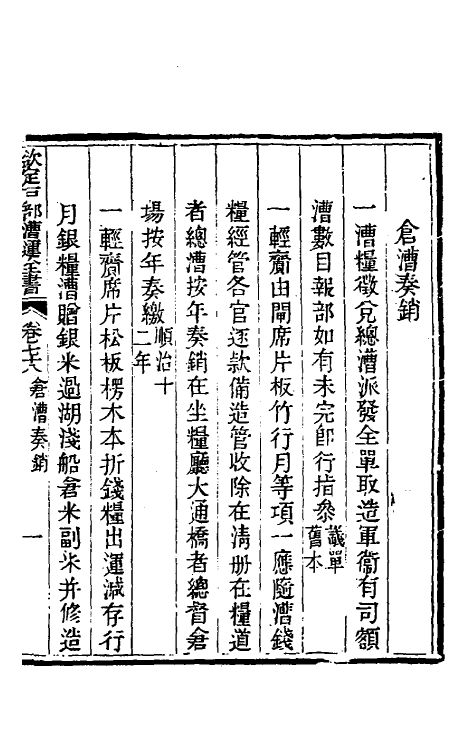 倉漕奏銷
一漕糧徵兌總漕派發全單取造軍衛有司額
漕數目報部如有未完卽行指叅議單舊本
一輕齎由閘席片板竹行月等項一應隨漕錢
糧經管各官逐款備造管收除在清册在糧道
者總漕按年奏銷在坐糧廳大通橋者總督倉
場按年奏繳順治十二年
一輕齎席片松板楞木本折錢糧出運減存行
月銀糧漕贈銀米過湖淺船倉米副米幷修造
欽定戶部漕運全書 卷七六 倉漕奏銷 一